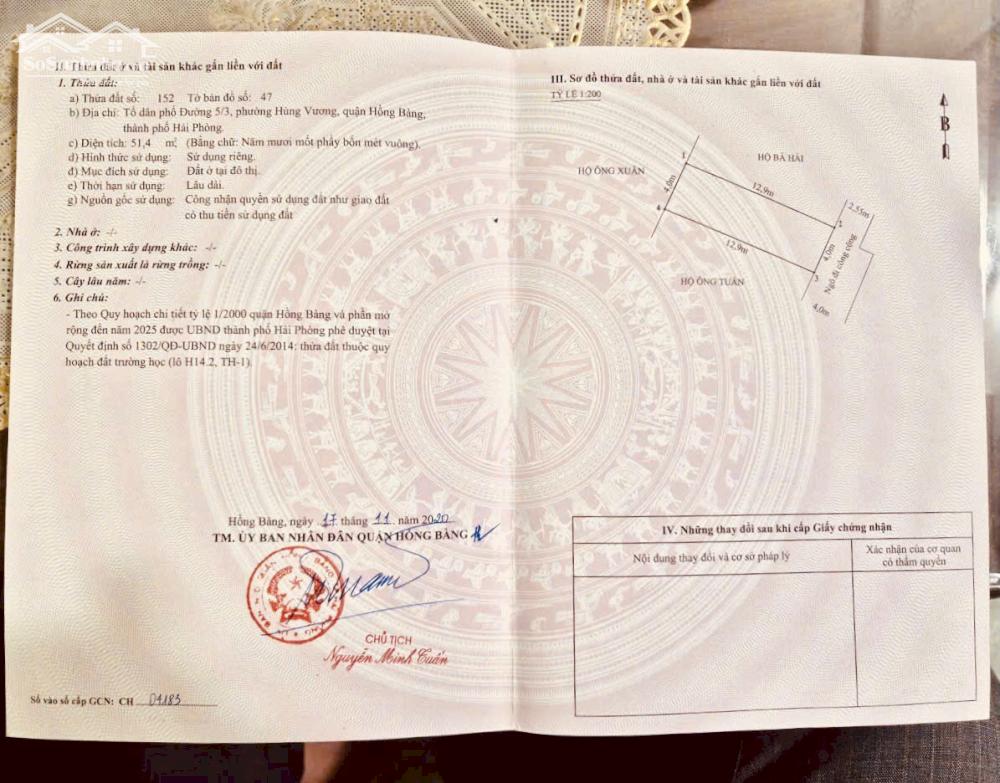 II. Thửa đất ở và tài sản khác gắn liền với đất
1. Thửa đất:
a) Thửa đất số: 152 Tờ bản đồ số: 47
b) Địa chỉ: Tổ dân phố Đường 5/3, phường Hùng Vương, quận Hồng Bàng,
thành phố Hải Phòng.
c) Diện tích: 51,4 m², (Bằng chữ: Năm mươi mốt phẩy bốn mét vuông).
d) Hình thức sử dụng: Sử dụng riêng.
đ) Mục đích sử dụng: Đất ở tại đô thị.
e) Thời hạn sử dụng: Lâu dài.
g) Nguồn gốc sử dụng: Công nhận quyền sử dụng đất như giao đất
có thu tiền sử dụng đất
2. Nhà ở: -/-
3. Công trình xây dựng khác: -/-
4. Rừng sản xuất là rừng trồng: -/-
5. Cây lâu năm: -/-
6. Ghi chú:
- Theo Quy hoạch chi tiết tỷ lệ 1/2000 quận Hồng Bàng và phần mở
rộng đến năm 2025 được UBND thành phố Hải Phòng phê duyệt tại
Quyết định số 1302/QĐ-UBND ngày 24/6/2014: thửa đất thuộc quy
hoạch đất trường học (lô H14.2, TH-1).
Hồng Bàng, ngày 17 tháng 11 năm 2020
TM. ỦY BAN NHÂN DÂN QUẬN HỒNG BÀNG
CHỦ TỊCH
Nguyễn Minh Tuấn
Số vào sổ cấp GCN: CH 04183
III. Sơ đồ thửa đất, nhà ở và tài sản khác gắn liền với đất
TỶ LỆ 1:200
B
HỘ BÀ HẢI
HỘ ÔNG XUÂN
1
4,0m
12,9m
2,55m
4
2
12,9m
4,0m
Ngõ đi công cộng
3
HỘ ÔNG TUÂN
4,0m
IV. Những thay đổi sau khi cấp Giấy chứng nhận
Nội dung thay đổi và cơ sở pháp lý
Xác nhận của cơ quan
có thẩm quyền